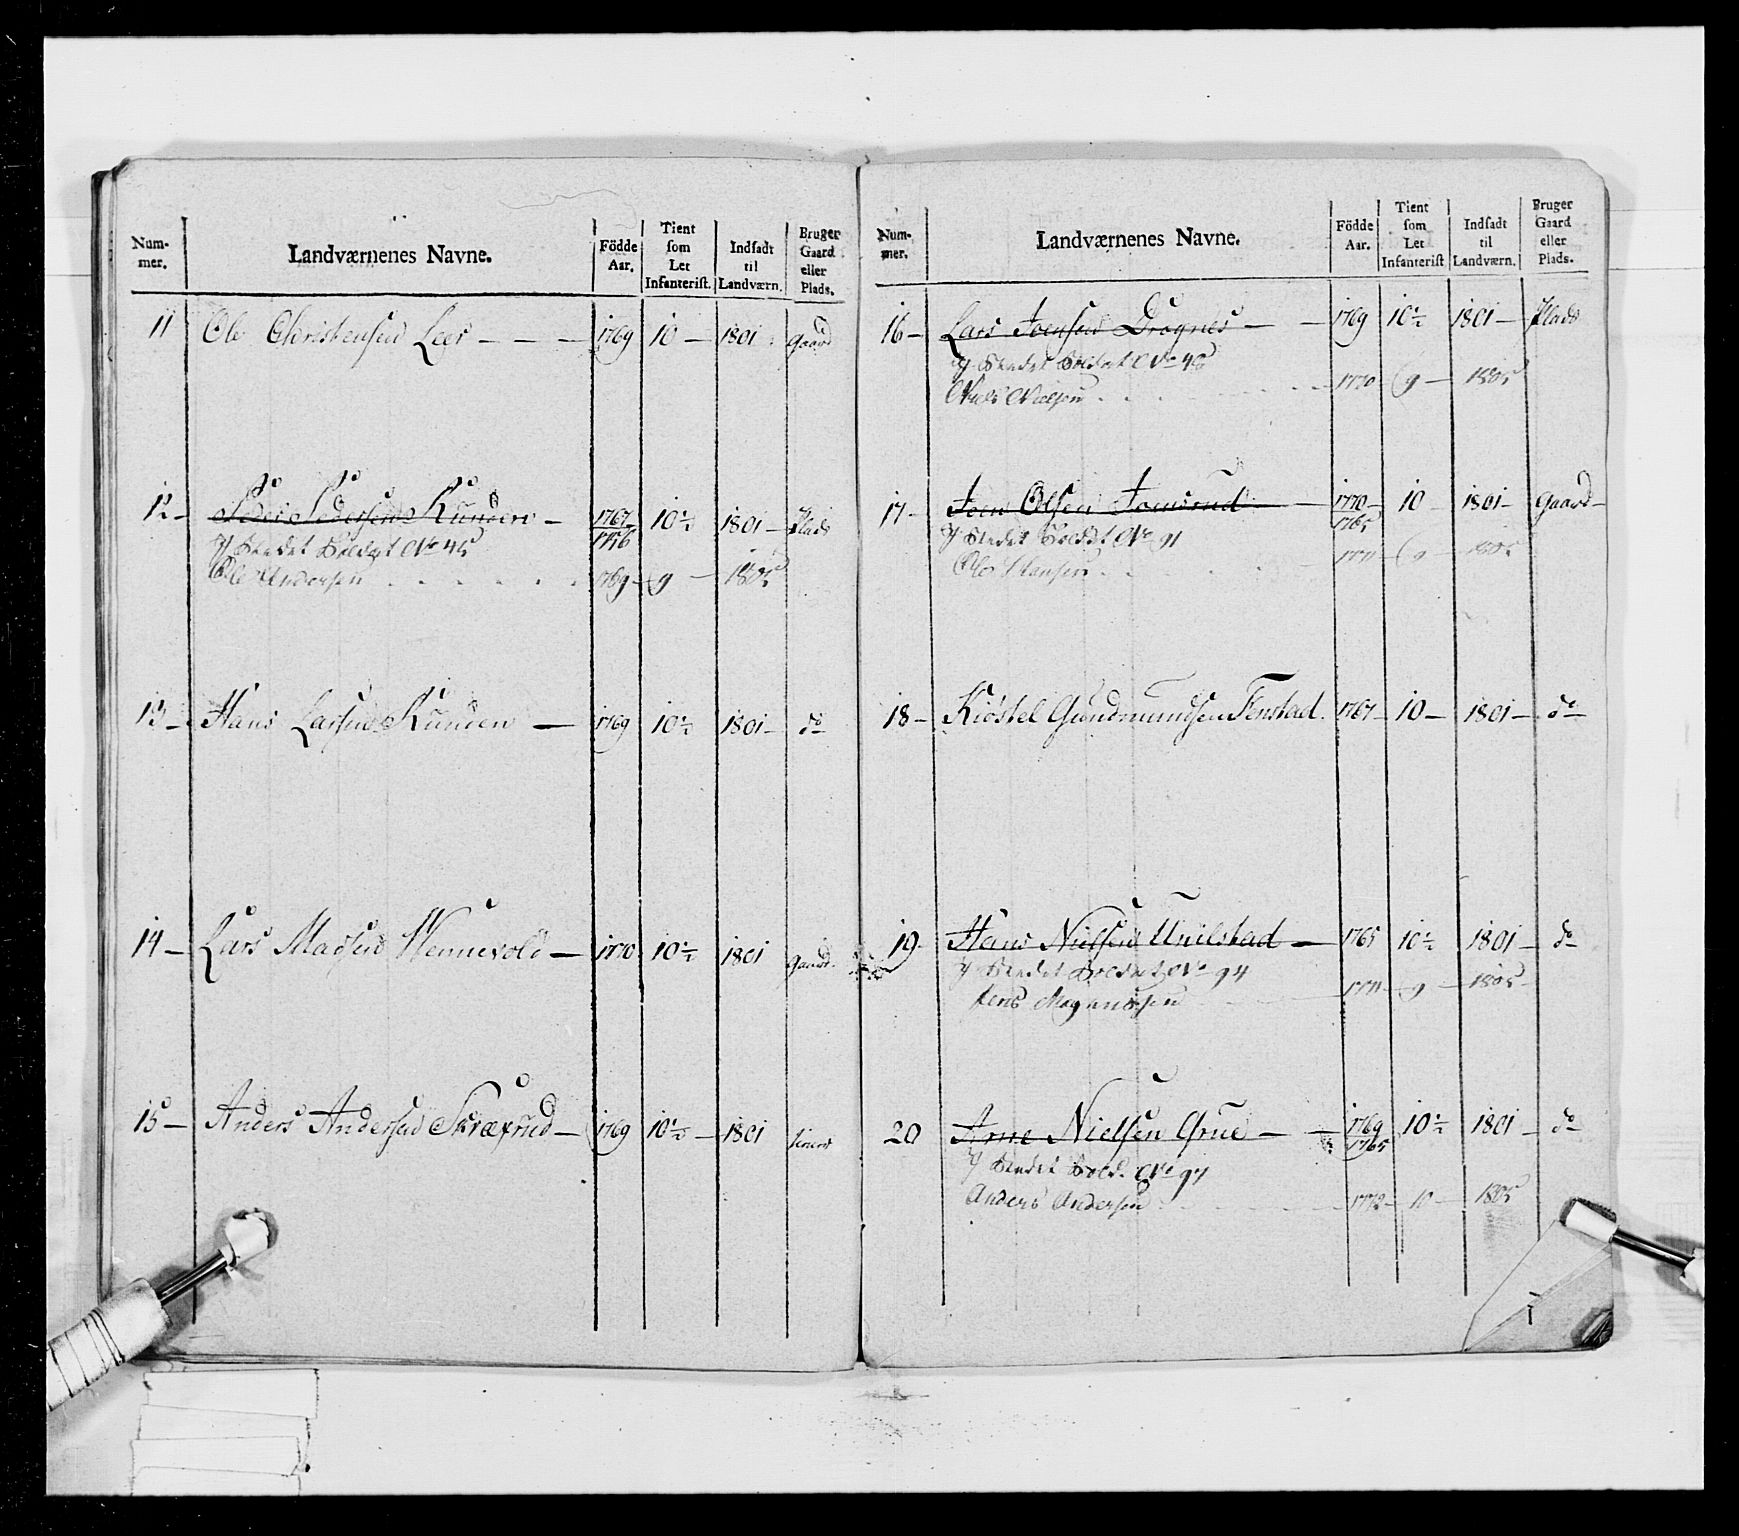 Num-
mer.
Landværnenes Navne.
Födde
Aar.
Tient
som
Let
Infanterist.
Indsadt
til
Landværn.
Bruger
Gaard
eller
Plads.
11 Ole Christensen Leer - - - 1769 10 - 1801 Gaard
12 - Peder Pedersen Kunden - 1767 10 1/2 1801 - Plads
1756
I Stedet Soldat No 45
Ole Andersen 1769 - 9 - 1805
13 - Hans Larsen Kunden - 1769 10 1/2 1801 - do
14 - Lars Madsen Wennevold - 1770 10 1/2 1801 Gaard
15 - Anders Andersen Skræfrud - 1769 10 1/2 - 1801
Num-
mer.
Landværnenes Navne.
Födde
Aar.
Tient
som
Let
Infanterist
Indsadt
til
Landværn.
Bruger
Gaard
eller
Plads.
16 - Lars Joensen Drognes - - 1769 10 1/2 1801 - Plads
I Stedet Soldat No 48
Niels Nielsen 1770 - 9 - 1805
17 - Joen Olsen - 1770 - 10 - 1801 - Gaard -
1765
I Stedet Soldat No 91
Ole Hansen 1771 - 9 - 1805
18 - Kiöstel Gundmundsen Fenstad. 1767 - 10 - 1801 - do
19 - Hans Nielsen Unilstad - 1765 10 1/2 1801 - do
I Stedet Soldat No 94
Jens Magnussen 1771 - 9 - 1805 -
20 Arne Nielsen Grue - - 1769 10 1/2 1801 - do
1765
I Stedet Sold. No 97
Anders Andersen 1772 - 10 - 1805